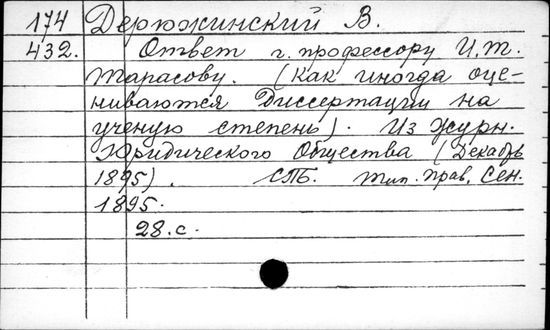 174 Дерюжинский В.
432. Ответ г. профессору И.Т.
Тарасову. (Как иногда оце-
ниваются Диссертации на
ученую степень). Из Журн.
Юридического Общества (Декабрь
1895). СПБ. Тип. Прав. Сен.
1895.
28.с.